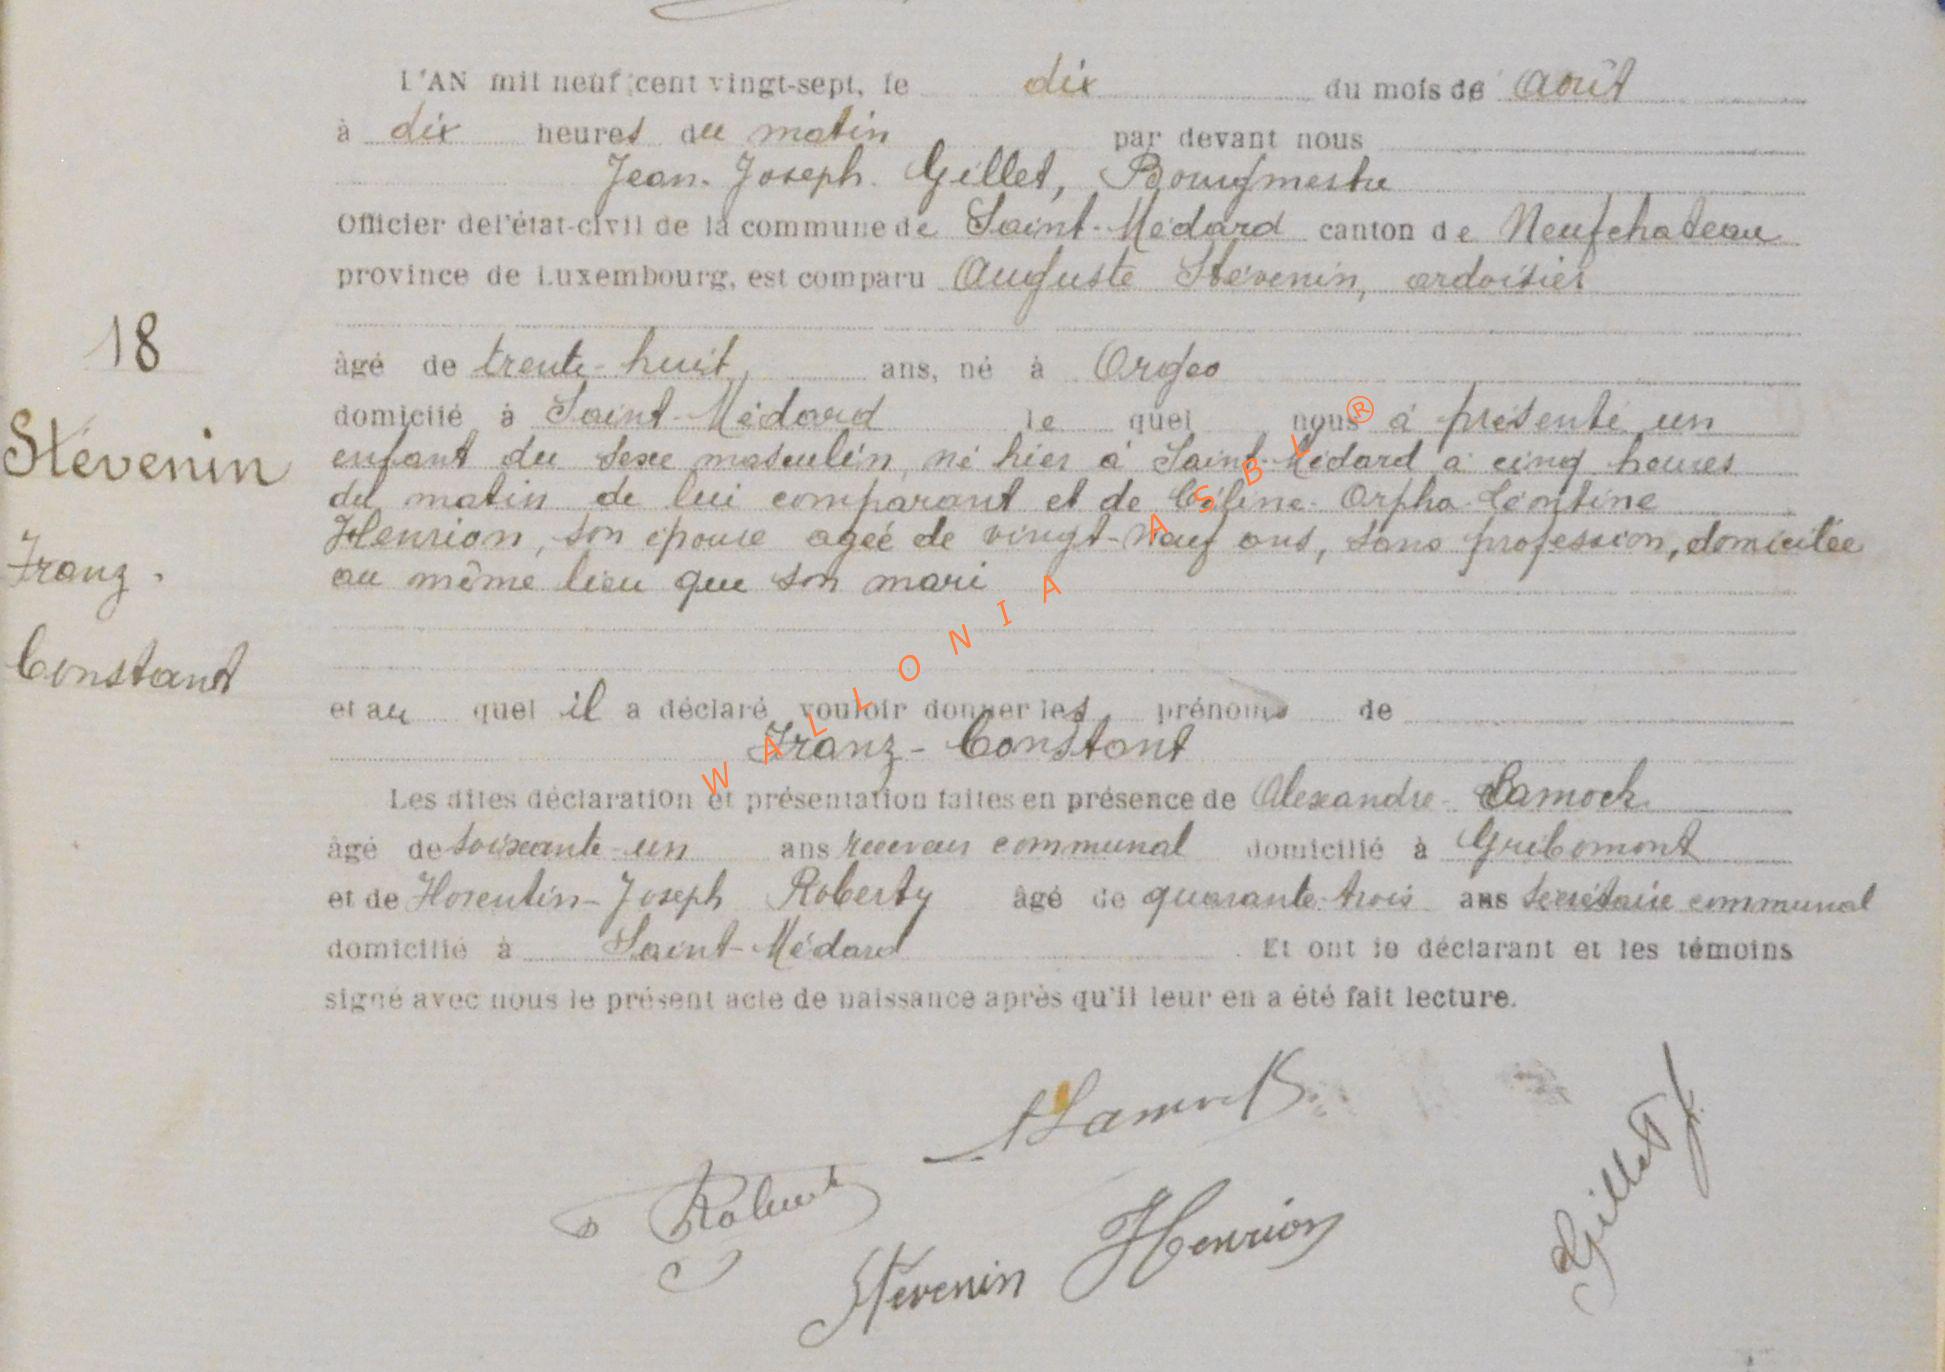 L'AN mil neuf cent vingt-sept, le dix du mois de Août
à dix heures du matin par devant nous
Jean-Joseph Gillet, Bourgmestre
Officier de l'état-civil de la commune de Saint-Médard canton de Neufchateau
province de Luxembourg, est comparu Auguste Stévenin, ardoisier
18
âgé de trente-huit ans, né à Orgeo
domicilié à Saint-Médard le quel nous a présenté un
Stévenin
enfant du sexe masculin, né hier à Saint-Médard à cinq heures
du matin de lui comparant et de Céline-Orpha-Léontine
Henrion, son épouse agée de vingt-neuf ans, sans profession, domiciliée
Franz
au même lieu que son mari
Constant
et au quel il a déclaré vouloir donner les prénoms de
Franz-Constant
Les dites déclaration et présentation faites en présence de Alexandre Lamock
âgé de soixante-un ans receveur communal domicilié à Gribomont
et de Florentin-Joseph Roberty âgé de quarante-trois ans secrétaire communal
domicilié à Saint-Médard. Et ont le déclarant et les témoins
signé avec nous le présent acte de naissance après qu'il leur en a été fait lecture.
Stévenin Henrion
Gillet J.
WALLONIA ASBL®